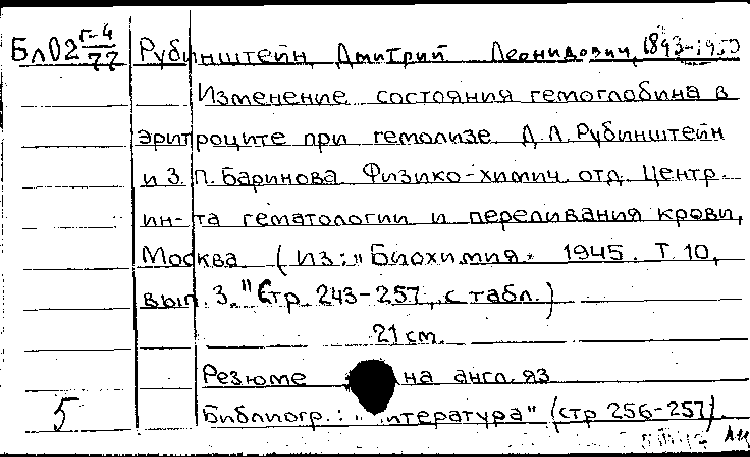 Бл02 г-4/77 Рубинштейн, Дмитрий Леонидович, 1893-1950
Изменение состояния гемоглобина в
эритроците при гемолизе Д.Л.Рубинштейн
и З.П.Баринова Физико-химич. отд. Центр.
ин-та гематологии и переливания крови,
Москва (Из: "Биохимия" 1945. Т.10,
вып. 3." Стр. 243-257, с табл.)
21 см.
Резюме на англ. яз
5 Библиогр.: "Литература" (стр 256-257).